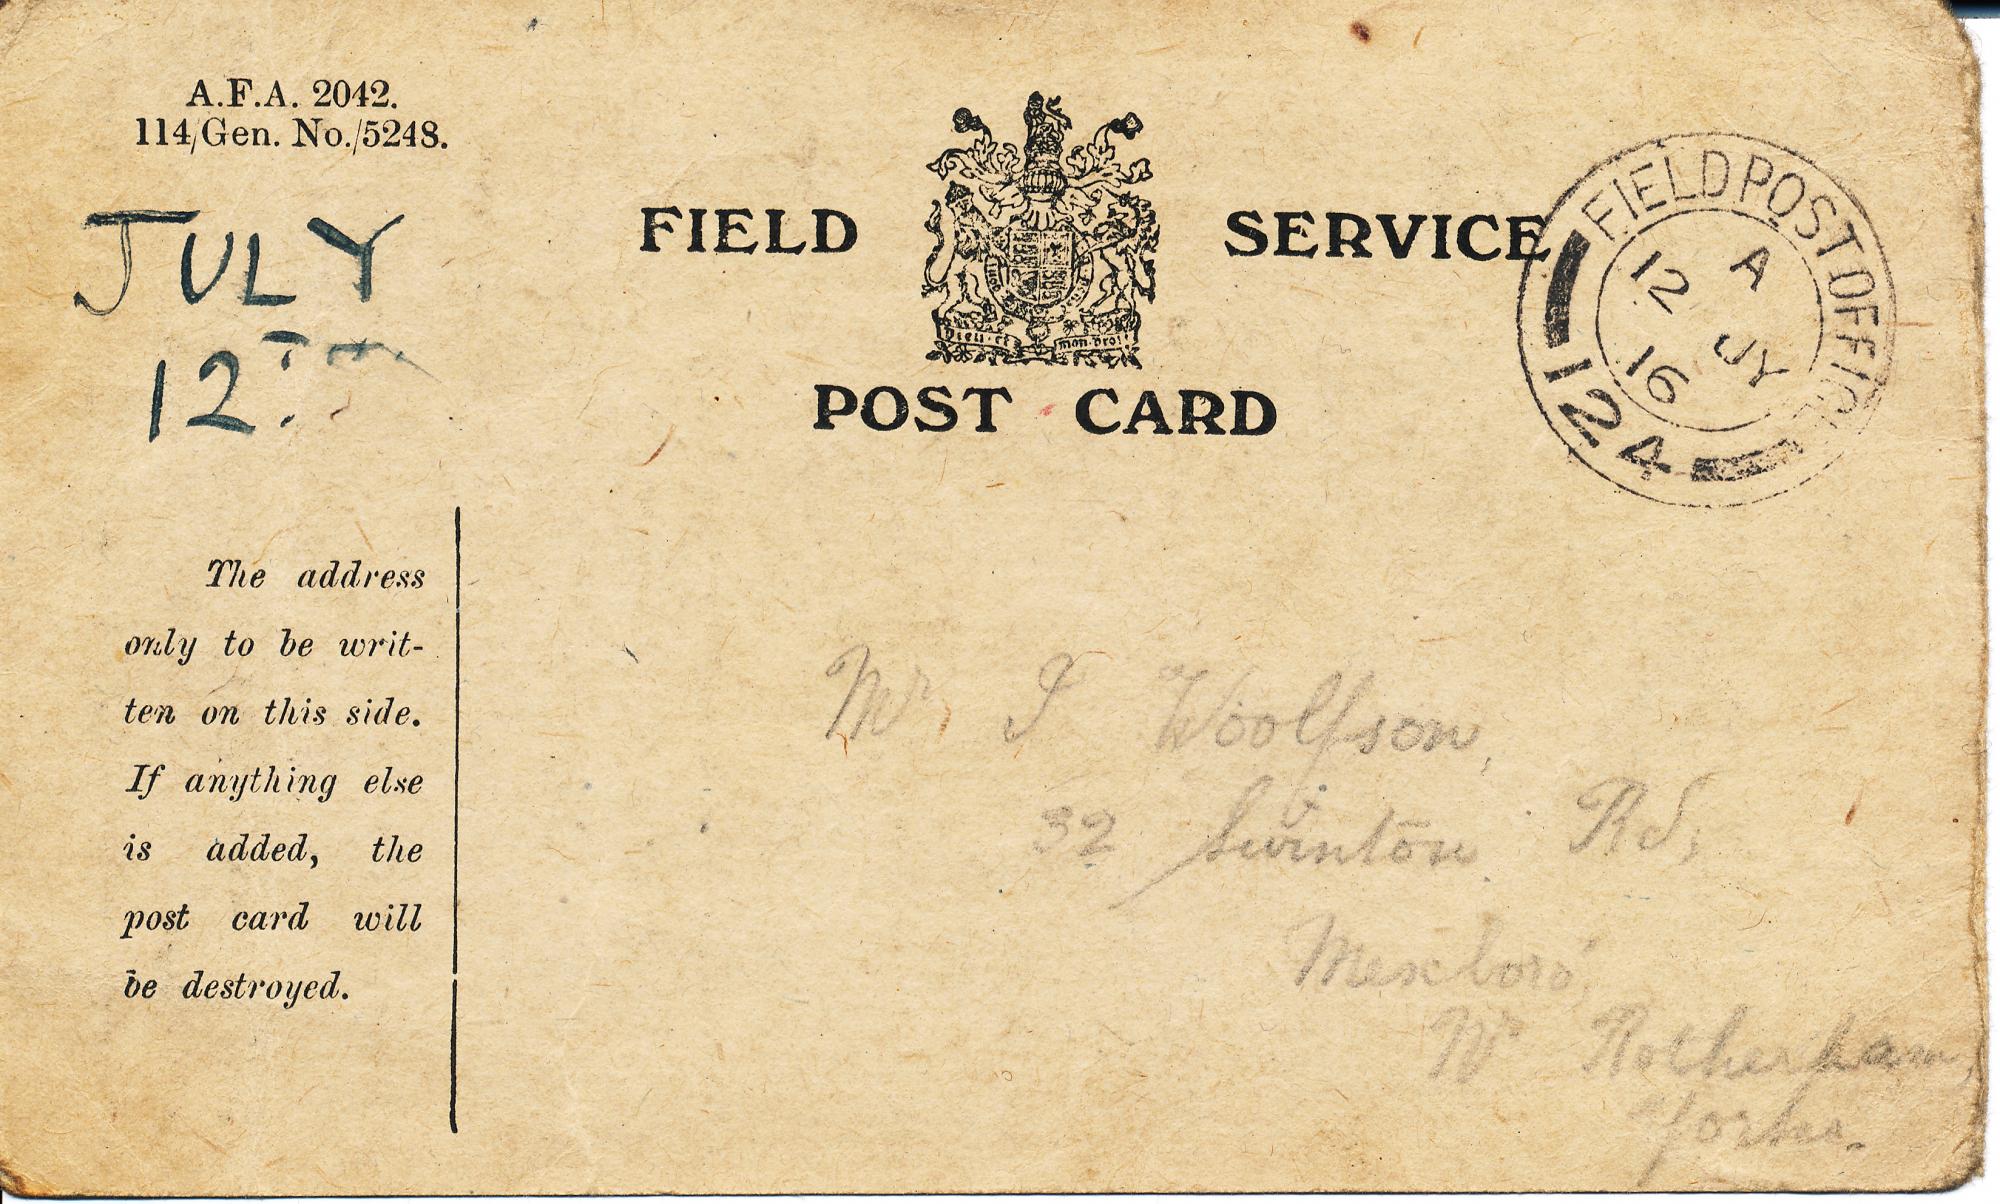 A.F.A. 2042.
114/Gen. No./5248.
JULY
12TH
FIELD SERVICE
POST CARD
Dieu et mon droit
FIELD POST OFFICE
A
12 JY
16
124
The address
only to be writ-
ten on this side.
If anything else
is added, the
post card will
be destroyed.
Mr. I Woolfson,
32 Swinton Rd,
Mexboro',
Nr Rotherham,
Yorks.